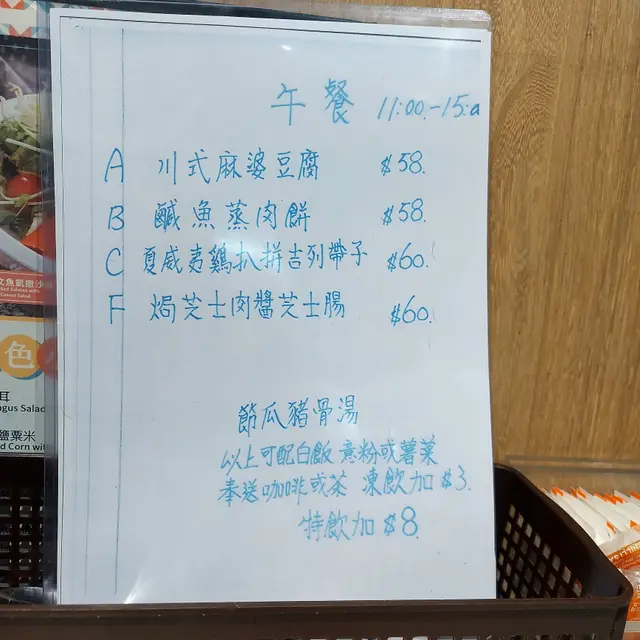 午餐 11:00.-15:a
A 川式麻婆豆腐 $58.
B 鹹魚蒸肉餅 $58.
C 夏威夷鷄扒拼吉列帶子 $60.
F 焗芝士肉醬芝士腸 $60.
節瓜豬骨湯
以上可配白飯 意粉或薯菜
奉送咖啡或茶 凍飲加 $3.
特飲加 $8.
文魚凱撒沙
Caesar Salad
色
耳
ngus Salad
鹽粟米
d Corn with